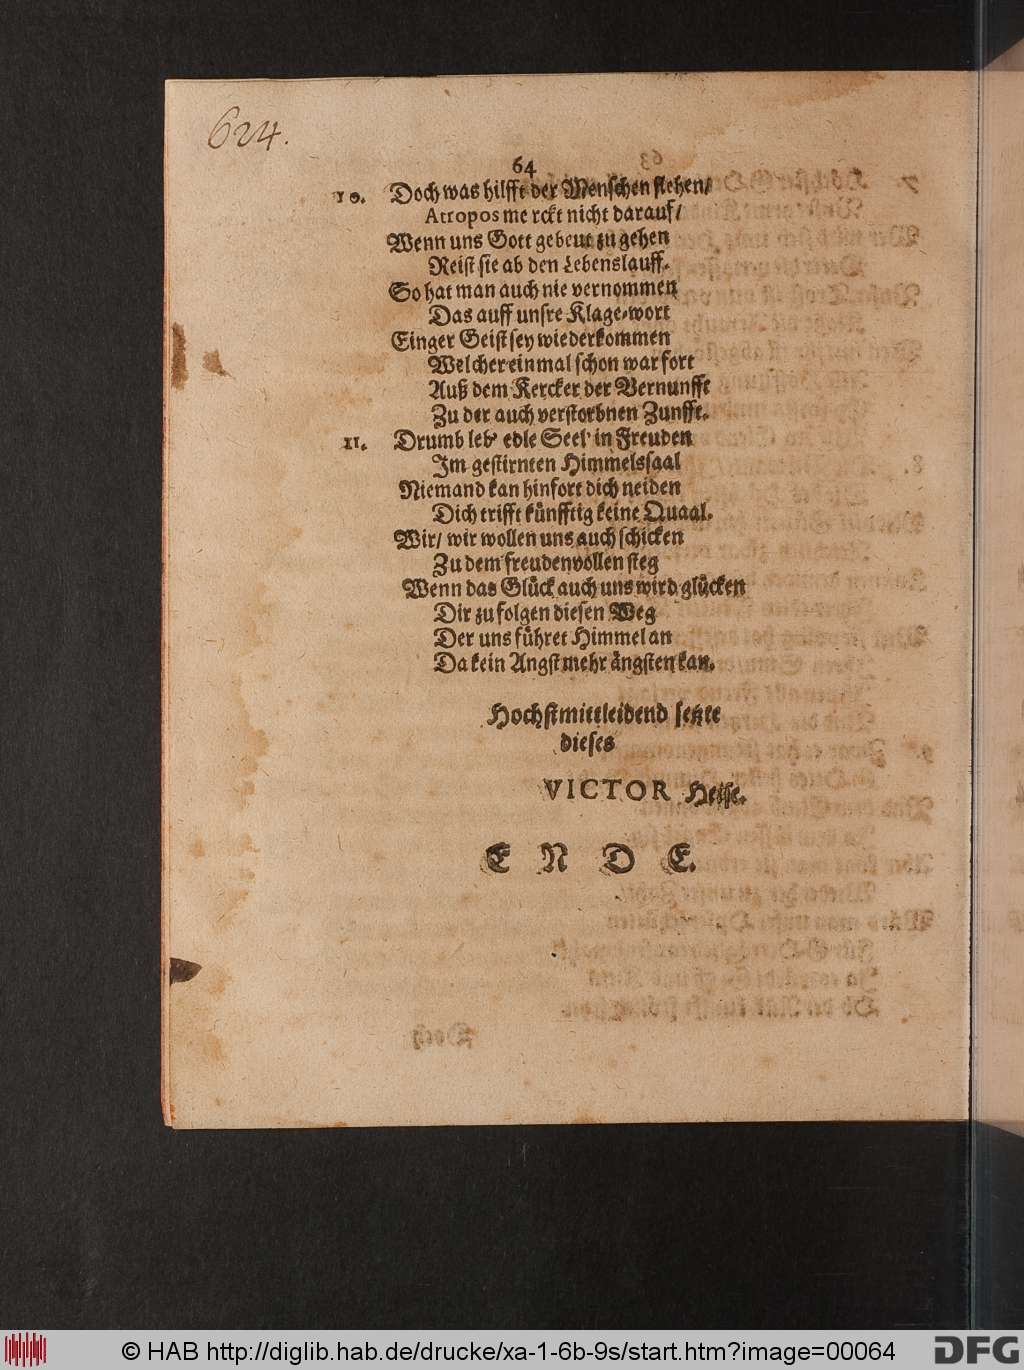 624.
64
10. Doch was hilfft der Menschen flehen/
Atropos merckt nicht darauf/
Wenn uns Gott gebeut zu gehen
Reist sie ab den Lebenslauff.
So hat man auch nie vernommen
Das auff unsre Klage-wort
Einger Geist sey wiederkommen
Welcher einmal schon war fort
Auß dem Kercker der Vernunfft
Zu der auch verstorbnen Zunfft.
11. Drumb leb' edle Seel' in Freuden
Im gestirnten Himmelssaal
Niemand kan hinfort dich neiden
Dich trifft künfftig keine Quaal.
Wir/ wir wollen uns auch schicken
Zu dem freudenvollen steg
Wenn das Glück auch uns wird glücken
Dir zu folgen diesen Weg
Der uns führet Himmel an
Da kein Angst mehr ängsten kan.
Hochstmittleidend setzte
dieses
VICTOR Hesse.
ENDE.
© HAB http://diglib.hab.de/drucke/xa-1-6b-9s/start.htm?image=00064
DFG